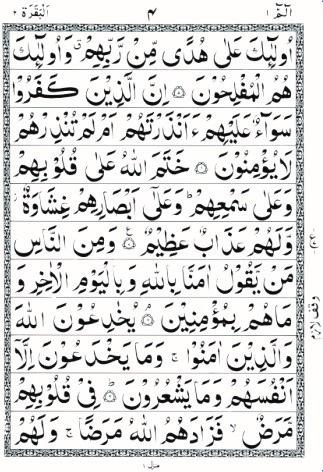 الٓمّٓ ١ ۴ اَلْبَقَرَة ٢
اُولٰٓئِكَ عَلٰى هُدًى مِّنْ رَّبِّهِمْ ۗ وَاُولٰٓئِكَ
هُمُ الْمُفْلِحُوْنَ ۝ اِنَّ الَّذِيْنَ كَفَرُوْا
سَوَآءٌ عَلَيْهِمْ ءَاَنْذَرْتَهُمْ اَمْ لَمْ تُنْذِرْهُمْ
لَا يُؤْمِنُوْنَ ۝ خَتَمَ اللّٰهُ عَلٰى قُلُوْبِهِمْ
وَعَلٰى سَمْعِهِمْ ؕ وَعَلٰٓى اَبْصَارِهِمْ غِشَاوَةٌ ز
وَّلَهُمْ عَذَابٌ عَظِيْمٌ ۝ وَمِنَ النَّاسِ
مَنْ يَّقُوْلُ اٰمَنَّا بِاللّٰهِ وَبِالْيَوْمِ الْاٰخِرِ وَ
مَا هُمْ بِمُؤْمِنِيْنَ ۝ يُخٰدِعُوْنَ اللّٰهَ
وَالَّذِيْنَ اٰمَنُوْا ۚ وَمَا يَخْدَعُوْنَ اِلَّآ
اَنْفُسَهُمْ وَمَا يَشْعُرُوْنَ ۝ فِيْ قُلُوْبِهِمْ
مَّرَضٌ ۙ فَزَادَهُمُ اللّٰهُ مَرَضًا ۚ وَلَهُمْ
وقف لازم
منزل ١